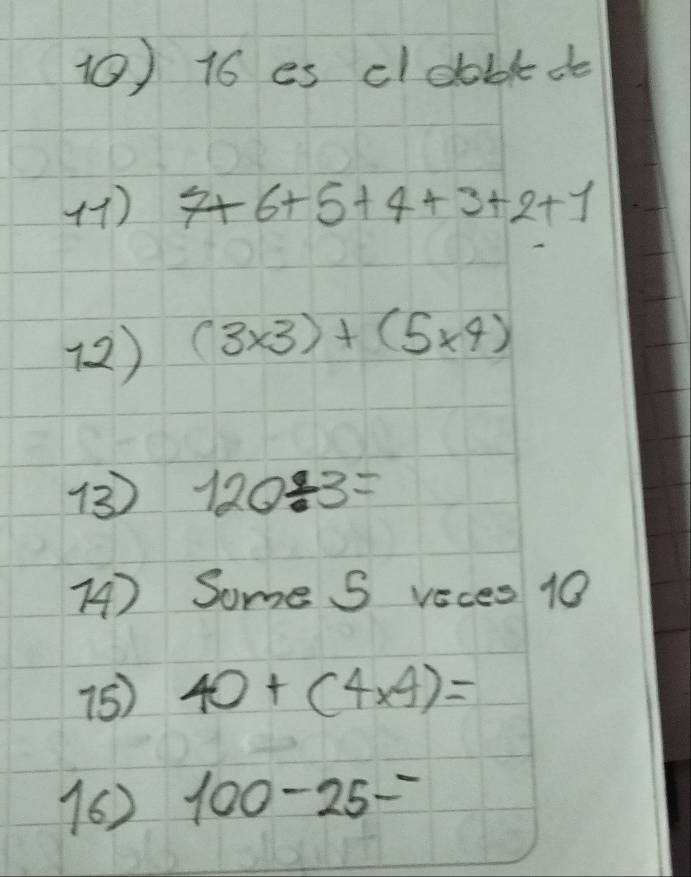 10) 16 es el doble de
11) 7+6+5+4+3+2+1
12) (3x3)+(5x4)
13) 120÷3=
14) Sume 5 veces 10
15) 40+(4x4)=
16) 100-25=